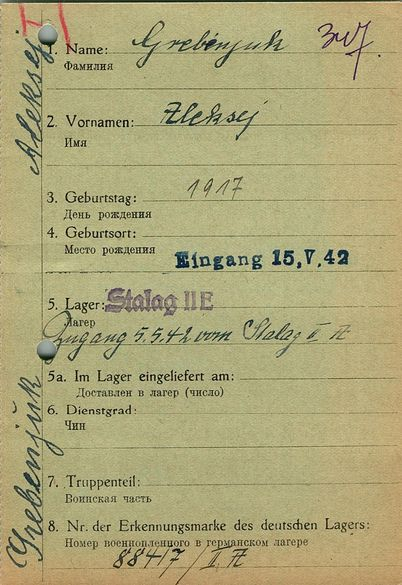 1. Name: Grebenjuk
Фамилия
2. Vornamen: Aleksej
Имя
3. Geburtstag: 1917
День рождения
4. Geburtsort:
Место рождения
Eingang 15.V.42
5. Lager: Stalag II E
Лагерь
Zugang 5.5.42 vom Stalag II A
5a. Im Lager eingeliefert am:
Доставлен в лагерь (число)
6. Dienstgrad:
Чин
7. Truppenteil:
Воинская часть
8. Nr. der Erkennungsmarke des deutschen Lagers:
Номер военнопленного в германском лагере
88417 / II A
Grebenjuk Aleksej